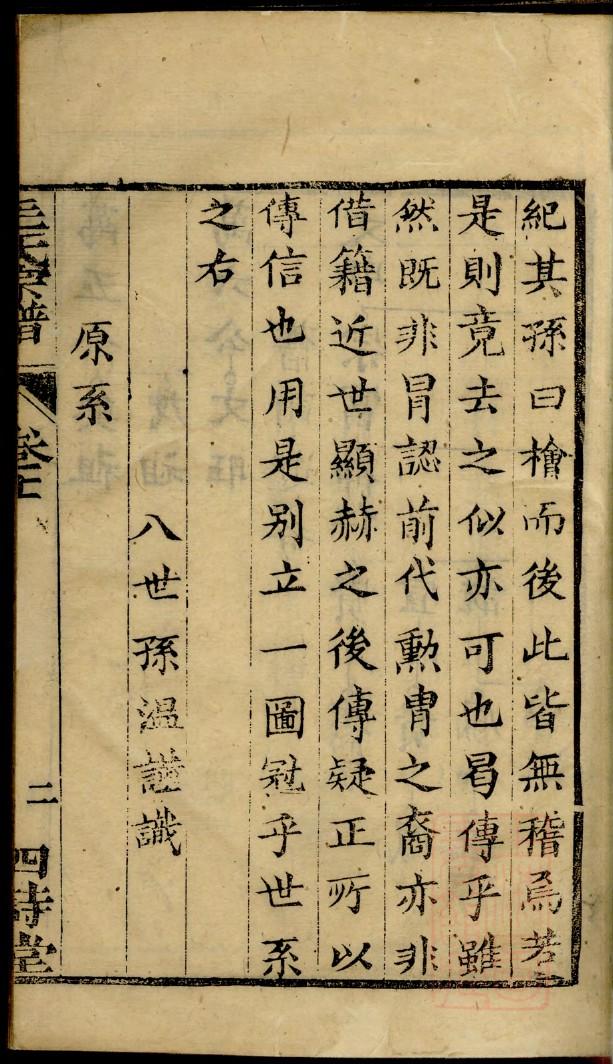 紀其孫曰檜而後此皆無稽焉若
是則竟去之似亦可也曷傳乎雖
然既非冒認前代勲胄之裔亦非
借籍近世顯赫之後傳疑正所以
傳信也用是别立一圖冠乎世系
之右
八世孫溫謹識
原系
毛氏宗譜
卷七
二
四詩堂